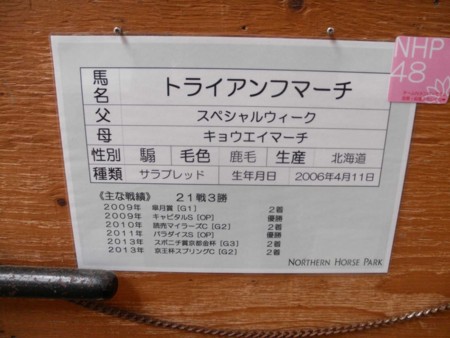 NHP
48
馬名 トライアンフマーチ
父 スペシャルウィーク
母 キョウエイマーチ
性別 騸 毛色 鹿毛 生産 北海道
種類 サラブレッド 生年月日 2006年4月11日
《主な戦績》 21戦3勝
2009年 皐月賞［G1］ 2着
2009年 キャピタルS［OP］ 優勝
2010年 読売マイラーズC［G2］ 2着
2011年 パラダイスS［OP］ 優勝
2013年 スポニチ賞京都金杯［G3］ 2着
2013年 京王杯スプリングC［G2］ 2着
NORTHERN HORSE PARK